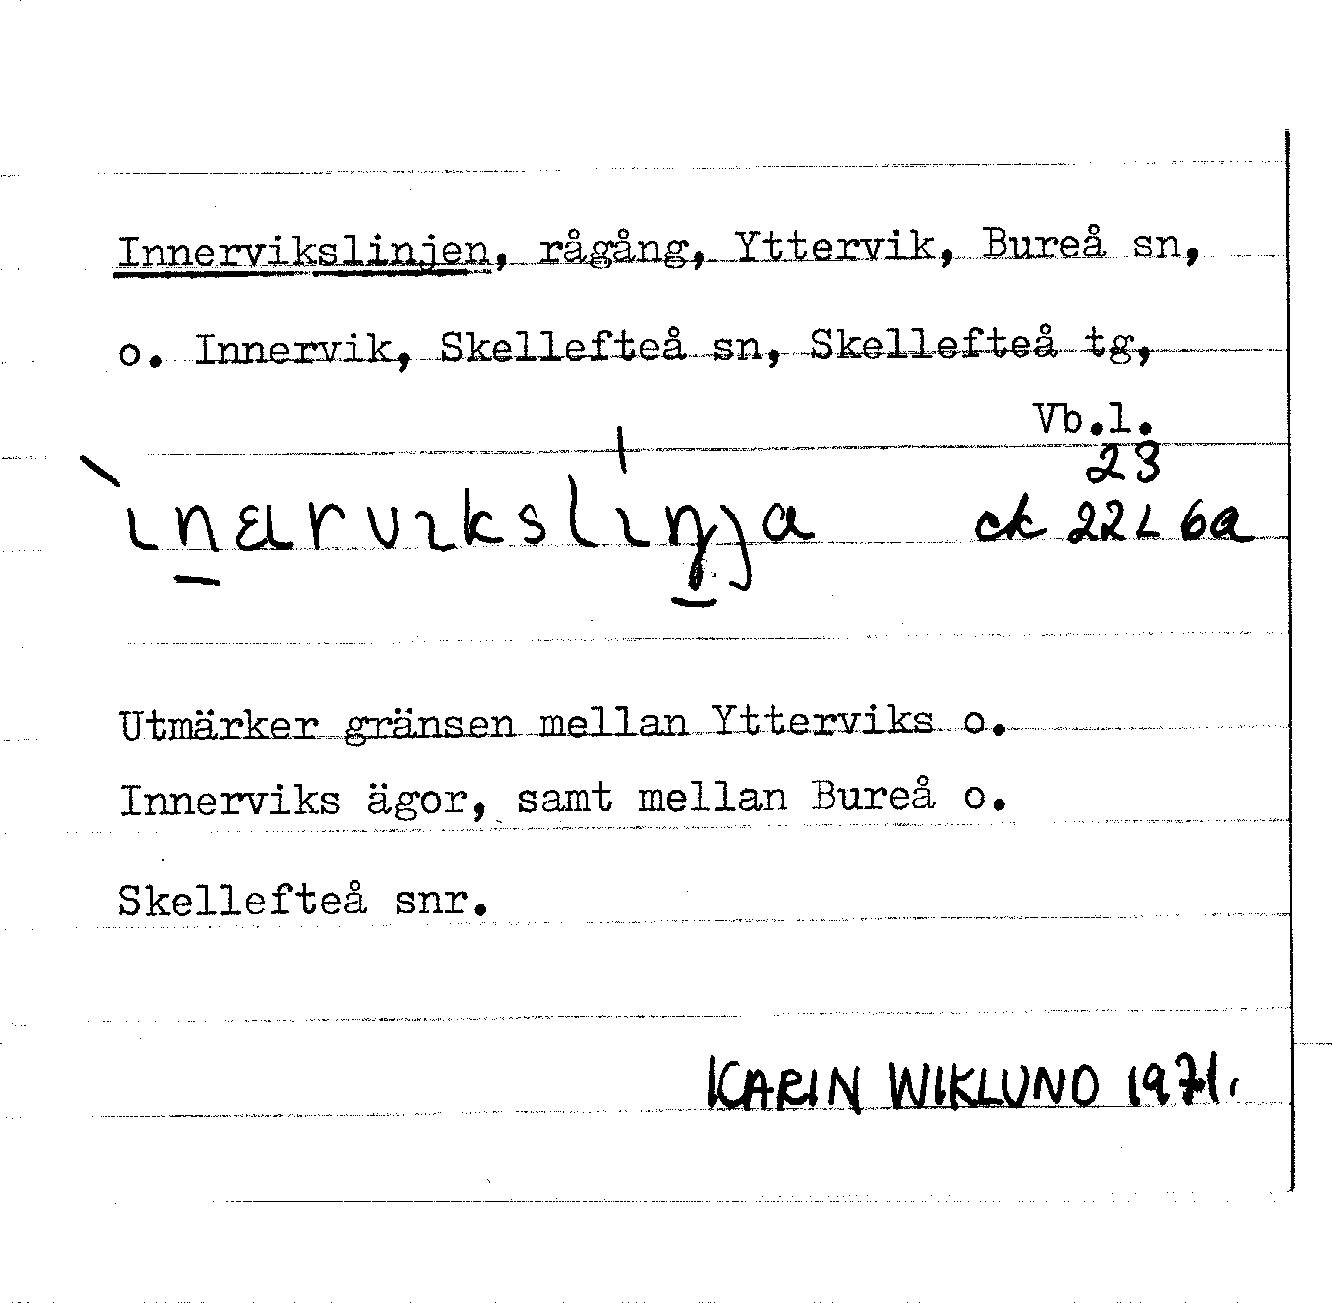 Innervikslinjen, rågång, Yttervik, Bureå sn,
o. Innervik, Skellefteå sn, Skellefteå tg,
Vb.l.
23
ek 22L 6a
Utmärker gränsen mellan Ytterviks o.
Innerviks ägor, samt mellan Bureå o.
Skellefteå snr.
KARIN WIKLUND 1971.